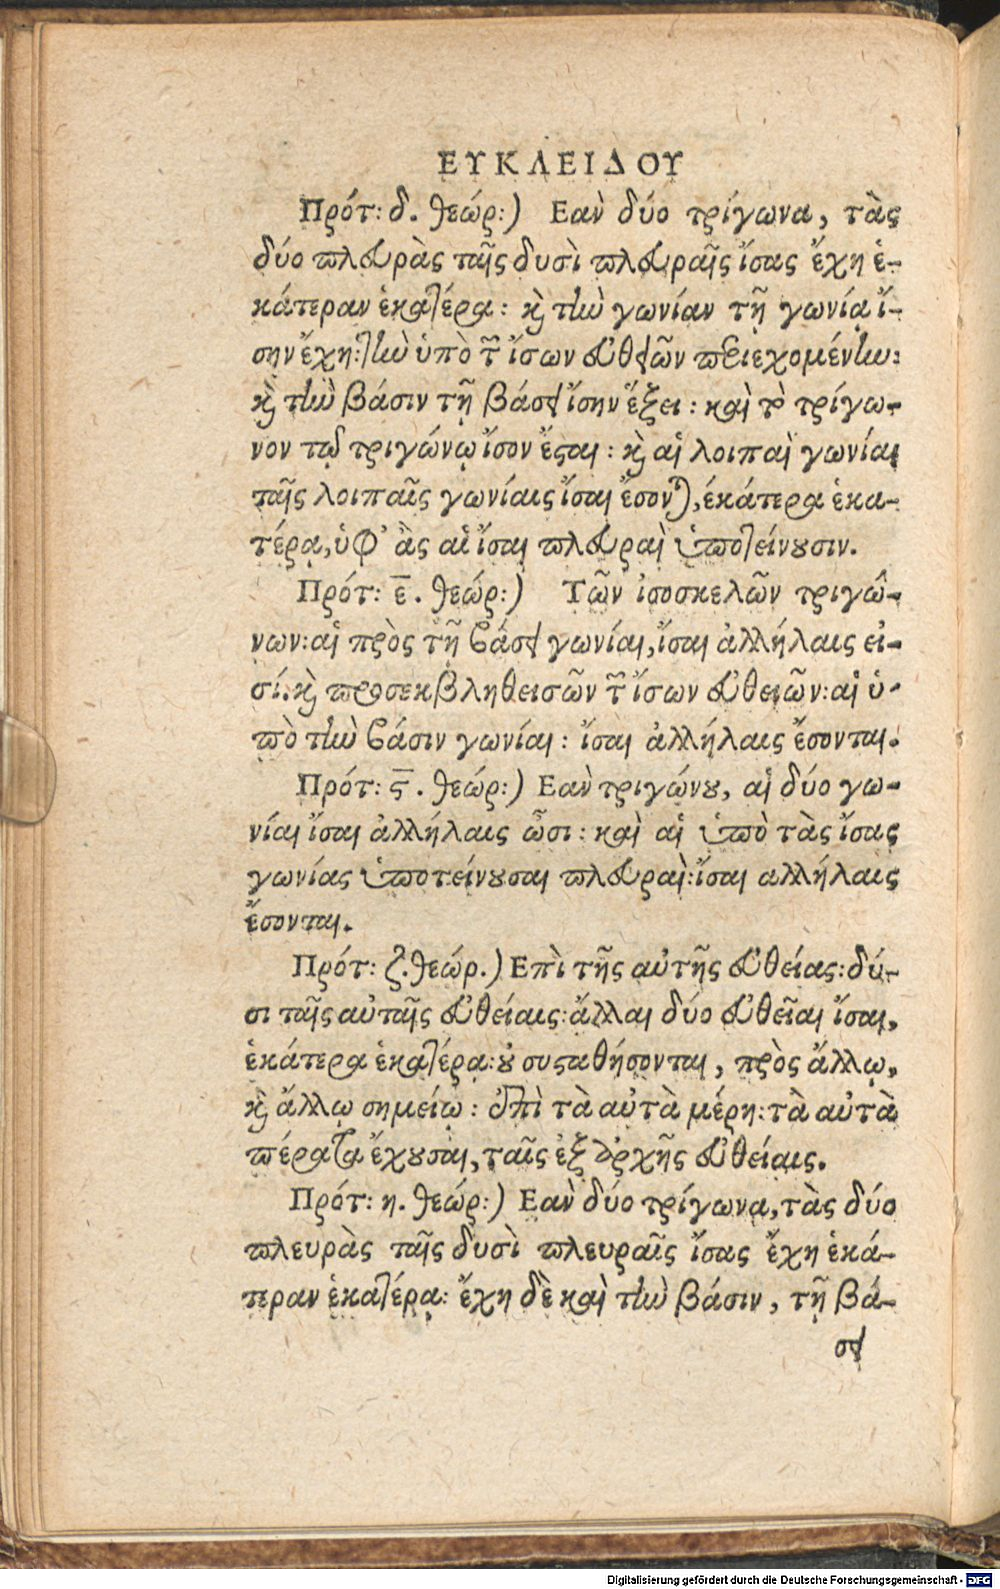 ΕΥΚΛΕΙΔΟΥ
Πρότ: δ. θεώρ:) Εαν δύο τρίγωνα, τὰς
δύο πλευρὰς ταῖς δυσὶ πλευραῖς ἴσας ἔχη ἑ-
κάτεραν ἑκατέρα: καὶ τὴν γωνίαν τῇ γωνίᾳ ἴ-
σην ἔχη: τὴν ὑπὸ τῶν ἴσων εὐθειῶν περιεχομένην:
καὶ τὴν βάσιν τῇ βάσει ἴσην ἕξει: καὶ τὸ τρίγω-
νον τῷ τριγώνῳ ἴσον ἔσται: καὶ αἱ λοιπαὶ γωνίαι
ταῖς λοιπαῖς γωνίαις ἴσαι ἔσονται, ἑκάτερα ἑκα-
τέρᾳ, ὑφ᾽ ἃς αἱ ἴσαι πλευραὶ ὑποτείνουσιν.
Πρότ: ε̅. θεώρ:) Τῶν ἰσοσκελῶν τριγώ-
νων: αἱ πρὸς τῇ βάσει γωνίαι, ἴσαι ἀλλήλαις εἰ-
σί. καὶ προσεκβληθεισῶν τῶν ἴσων εὐθειῶν: αἱ ὑ-
πὸ τὴν βάσιν γωνίαι: ἴσαι ἀλλήλαις ἔσονται.
Πρότ: ϛ̅. θεώρ:) Εαν τριγώνου, αἱ δύο γω-
νίαι ἴσαι ἀλλήλαις ὦσι: καὶ αἱ ὑπὸ τὰς ἴσας
γωνίας ὑποτείνουσαι πλευραὶ: ἴσαι αλλήλαις
ἔσονται.
Πρότ: ζ. θεώρ.) Επὶ τῆς αὐτῆς εὐθείας: δύ-
σι ταῖς αὐταῖς εὐθείαις: ἄλλαι δύο εὐθεῖαι ἴσαι,
ἑκάτερα ἑκατέρᾳ: οὐ συσταθήσονται, πρὸς ἄλλῳ,
καὶ ἄλλῳ σημείῳ: ἐπὶ τὰ αὐτὰ μέρη: τὰ αὐτὰ
πέρατα ἔχουσαι, ταῖς ἐξ ἀρχῆς εὐθείαις.
Πρότ: η. θεώρ:) Εαν δύο τρίγωνα, τὰς δύο
πλευρὰς ταῖς δυσὶ πλευραῖς ἴσας ἔχη ἑκά-
τεραν ἑκατέρᾳ: ἔχη δὲ καὶ τὴν βάσιν, τῇ βά-
σει
Digitalisierung gefördert durch die Deutsche Forschungsgemeinschaft - DFG